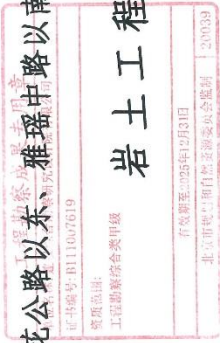 花公路以东、雅瑶中路以南
岩土工程
工程勘察成果专用章
证书编号:B111007619
资质范围:
工程勘察综合类甲级
有效期至:2025年12月31日
北京市规划和自然资源委员会监制
20039